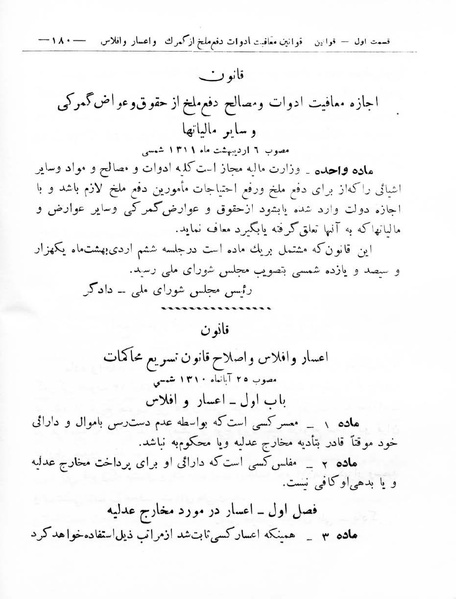 قسمت اول — قوانین قوانین معافیت ادوات دفع ملخ از گمرك و اعسار و افلاس —۱۸۰—
قانون
اجازه معافیت ادوات و مصالح دفع ملخ از حقوق و عوارض گمرکی
و سایر مالیاتها
مصوب ۶ اردیبهشت ماه ۱۳۱۱ شمسی
ماده واحده ـ وزارت مالیه مجاز است کلیه ادوات و مصالح و مواد و سایر
اشیائی را که از برای دفع ملخ و رفع احتیاجات مأمورین دفع ملخ لازم باشد و با
اجازه دولت وارد شده یا بشود از حقوق و عوارض گمرکی و سایر عوارض و
مالیاتها که به آنها تعلق گرفته یا بگیرد معاف نماید.
این قانون که مشتمل بر یك ماده است در جلسه ششم اردی بهشت ماه یکهزار
و سیصد و یازده شمسی بتصویب مجلس شورای ملی رسید.
رئیس مجلس شورای ملی ــ دادگر
قانون
اعسار و افلاس و اصلاح قانون تسریع محاکمات
مصوب ۲۵ آبانماه ۱۳۱۰ شمسی
باب اول ـ اعسار و افلاس
ماده ۱ ـ معسر کسی است که بواسطه عدم دسترس باموال و دارائی
خود موقتاً قادر بتأدیه مخارج عدلیه و یا محکوم به نباشد.
ماده ۲ ـ مفلس کسی است که دارائی او برای پرداخت مخارج عدلیه
و یا بدهی او کافی نیست.
فصل اول ـ اعسار در مورد مخارج عدلیه
ماده ۳ ـ همینکه اعسار کسی ثابت شد از مراتب ذیل استفاده خواهد کرد